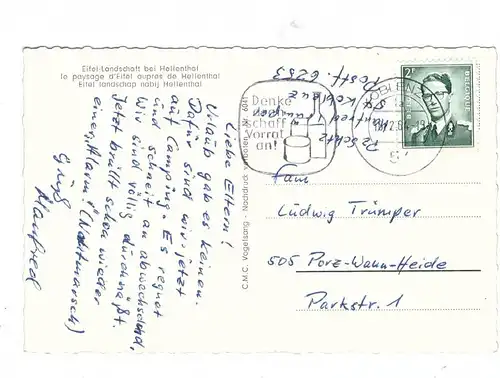 Eifel-Landschaft bei Hellenthal
le paysage d'Eifel aupres de Hellenthal
Eifel landschap nabij Hellenthal
Liebe Eltern!
Urlaub gab es keinen.
Dafür sind wir jetzt
auf Camping. Es regnet
und schneit an abwechselnd,
Wir sind völlig durchnäßt.
Jetzt brüllt schon wieder
einer „Alarm!" (Nachtmarsch)
Gruß
Manfred
C.M.C. Vogelsang - Nachdruck verboten - Nr. 6041
Denke
schaff
Vorrat
an!
KOBLENZ
2F
BELGIQUE
Manfred Trümper
54 Koblenz
Postf. 6253
Fam
Ludwig Trümper
505 Porz-Wann-Heide
Parkstr. 1